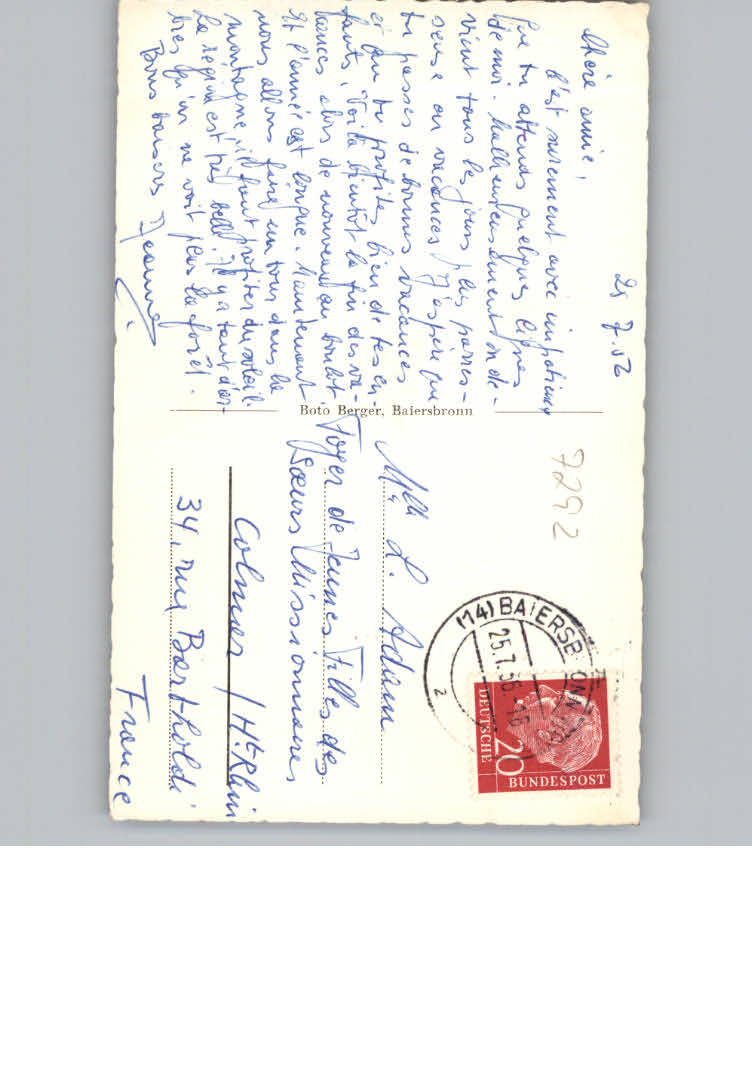 25.7.56
Chère amie,
C'est surement avec impatience
que tu attends quelques lignes
de moi. Malheureusement on de-
vient tous les jours plus pares-
seuse en vacances. J'espère que
tu passes de bonnes vacances
et que tu profites bien de tes en-
fants. Voilà bientôt la fin des va-
cances alors de nouveau au boulot
et l'année est longue. Maintenant
nous allons faire un tour dans la
montagne, il faut profiter du soleil.
La région est très belle. Il y a tant d'ar-
bres qu'on ne voit plus la forêt.
Bons baisers Jeanne
Foto Berger, Baiersbronn
7292
(14) BAIERSBRONN
25.7.56.-16
z
DEUTSCHE
BUNDESPOST
20
Mlle L. Adam
Foyer de Jeunes Filles des
Sœurs Missionnaires
Colmar / Ht Rhin
34, rue Bartholdi
France